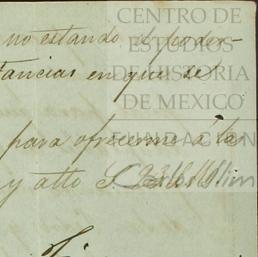 CENTRO DE
ESTUDIOS
DE HISTORIA
DE MEXICO
FUNDACIÓN
no estando el poder
tancias en que se
para ofrecerme á la
y atto S.